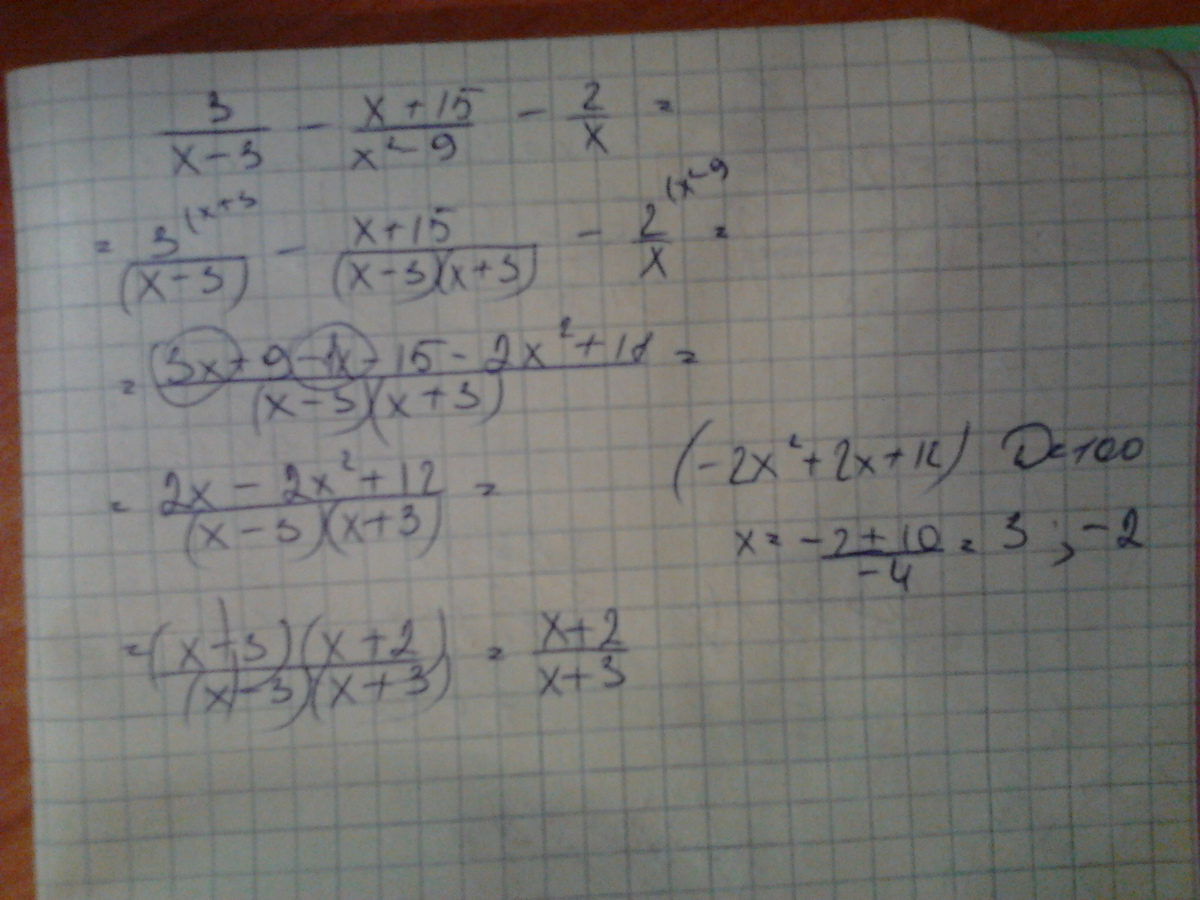 3/(x-3) - (x+15)/(x²-9) - 2/x =
= 3^(x+3/(x-3) - (x+15)/((x-3)(x+3)) - 2^(x²-9/x =
= (3x+9-1x-15-2x²+18)/((x-3)(x+3)) =
= (2x-2x²+12)/((x-3)(x+3)) =
(-2x²+2x+12) D=100
x = (-2±10)/(-4) = 3; -2
= (x-3)(x+2)/((x-3)(x+3)) = (x+2)/(x+3)